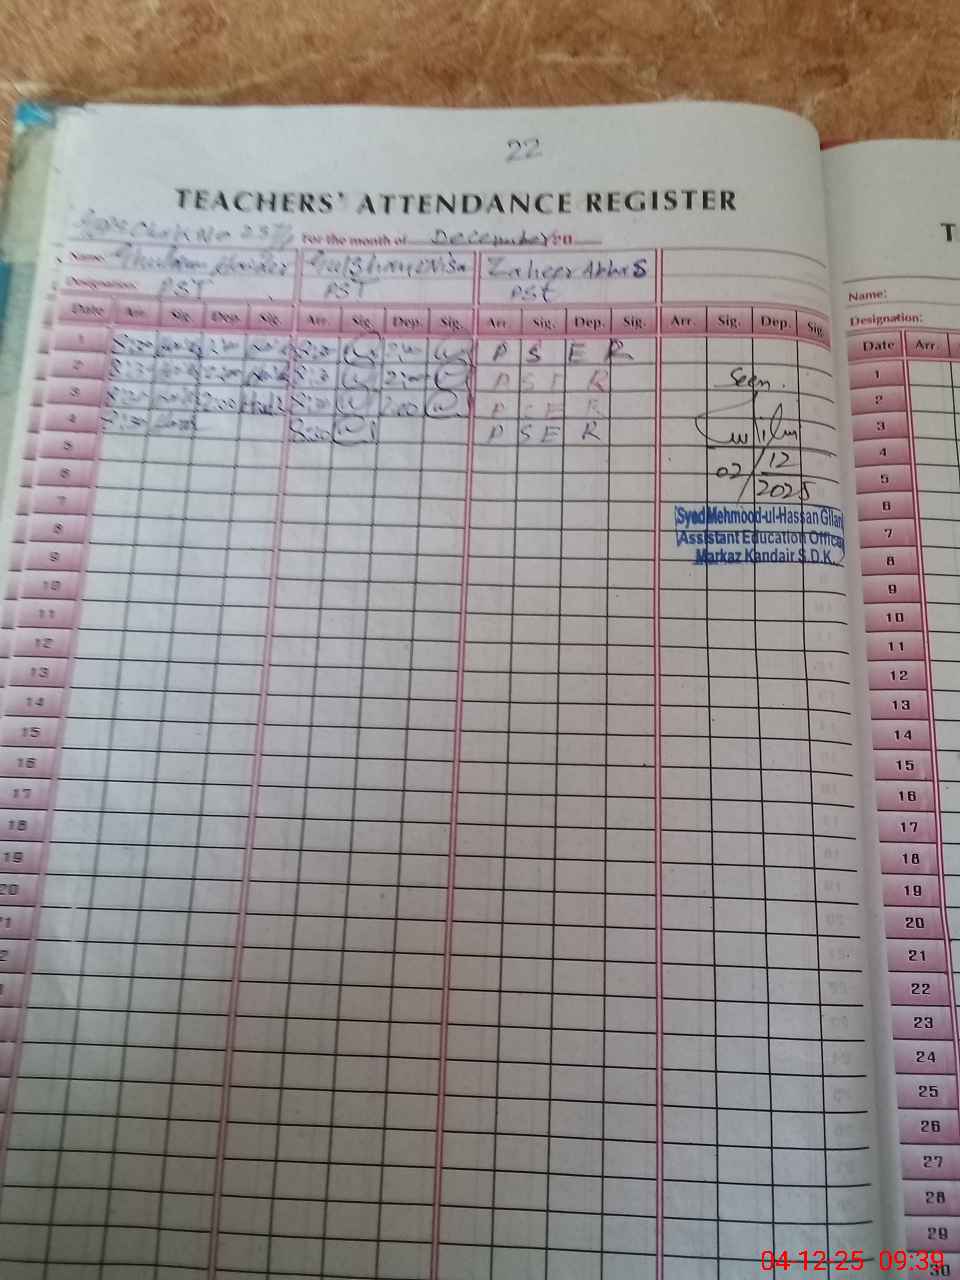 22
TEACHERS' ATTENDANCE REGISTER
Chak No For the month of December 20
Name: Ghulam Haider Gulshan e Nisa Zaheer Abbas
Designation: PST PST PSt
Date Arr. Sig. Dep. Sig. Arr. Sig. Dep. Sig. Arr. Sig. Dep. Sig. Arr. Sig. Dep. Sig.
1 8:30 8:30 2:00 P S E R
2 8:30 2:00 8:30 2:00 P S E R
3 8:30 2:00 8:30 2:00 P S E R
4 8:30 8:30 P S E R
5
6
7
8
9
10
11
12
13
14
15
16
17
18
19
20
Seen.
02/12/2025
Syed Mehmood-ul-Hassan Gilani
Assistant Education Officer
Markaz Kandair S.D.K.
T
Name:
Designation:
Date Arr
1
2
3
4
5
6
7
8
9
10
11
12
13
14
15
16
17
18
19
20
21
22
23
24
25
26
27
28
29
30
04 12 25 09:39